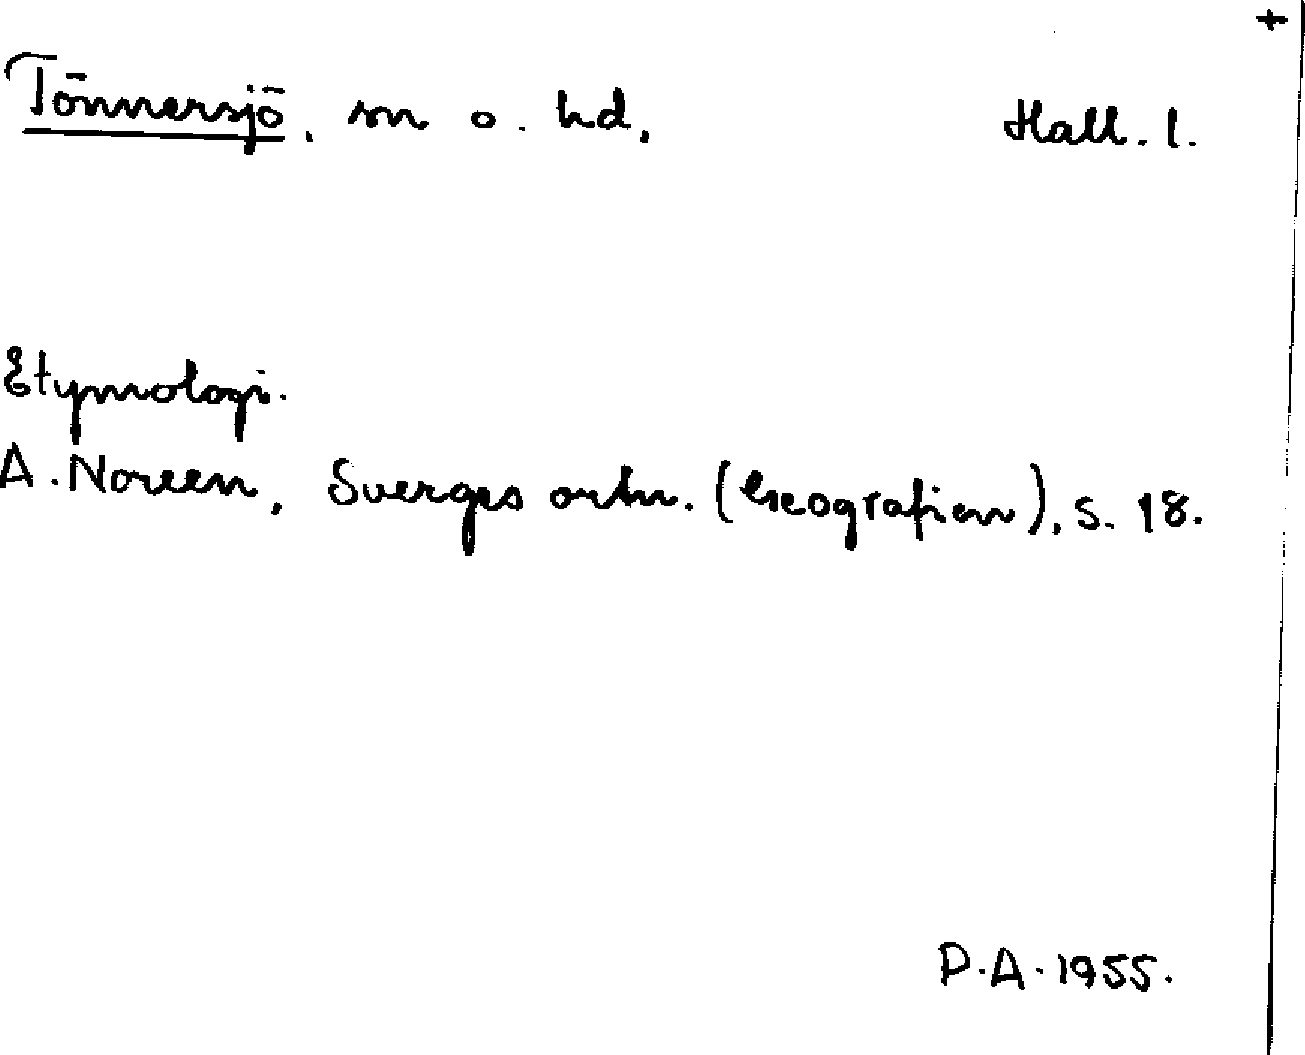 +
Tönnersjö, sn o. hd. Hall. l.
Etymologi.
A. Noreen, Sverges ortn. (Geografien), s. 18.
P.A. 1955.